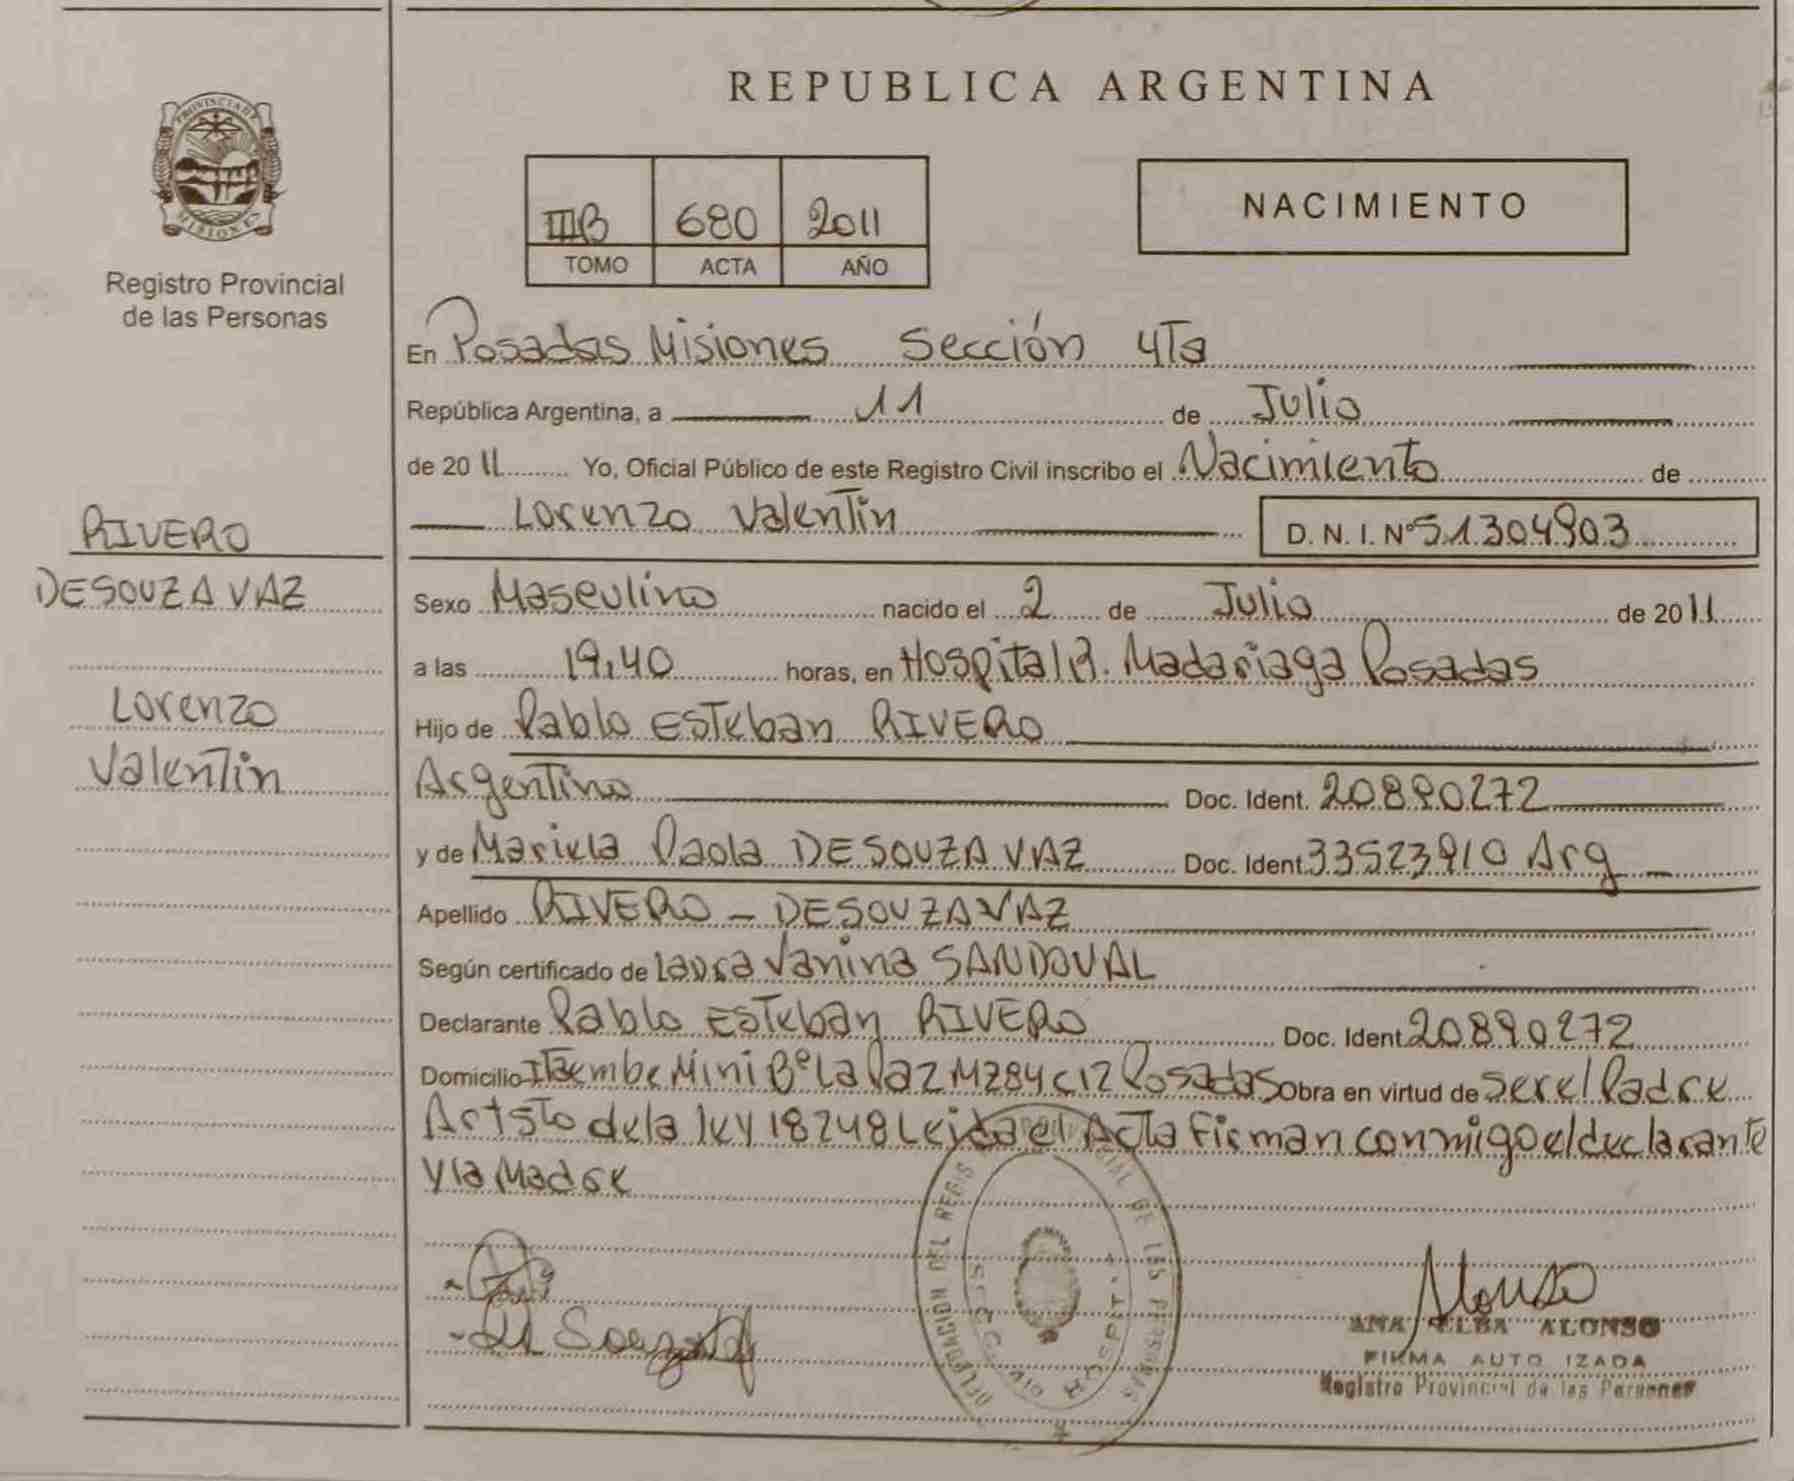 REPUBLICA ARGENTINA
PROVINCIA DE
MISIONES
Registro Provincial
de las Personas
IIIB 680 2011
TOMO ACTA AÑO
NACIMIENTO
En Posadas Misiones Sección 4Ta
República Argentina, a 11 de Julio
de 2011 Yo, Oficial Público de este Registro Civil inscribo el Nacimiento de
Lorenzo Valentin D. N. I. Nº 51304903
RIVERO
DESOUZA VAZ
Lorenzo
Valentin
Sexo Masculino nacido el 2 de Julio de 2011
a las 19,40 horas, en Hospital R. Madariaga Posadas
Hijo de Pablo Esteban RIVERO
Argentino Doc. Ident. 20890272
y de Mariela Paola DESOUZA VAZ Doc. Ident. 33523910 Arg
Apellido RIVERO - DESOUZA VAZ
Según certificado de Laura Vanina SANDOVAL
Declarante Pablo Esteban RIVERO Doc. Ident. 20890272
Domicilio Itaembe Mini Bº La Paz MZ84 C12 Posadas Obra en virtud de ser el Padre
Art 5to de la ley 18248 Leida el Acta Firman conmigo el declarante
y la Madre
DELEGACION DEL REGIS CIAL DE LAS PERSONAS
Alonso
ANA ELBA ALONSO
FIRMA AUTO IZADA
Registro Provincial de las Personas